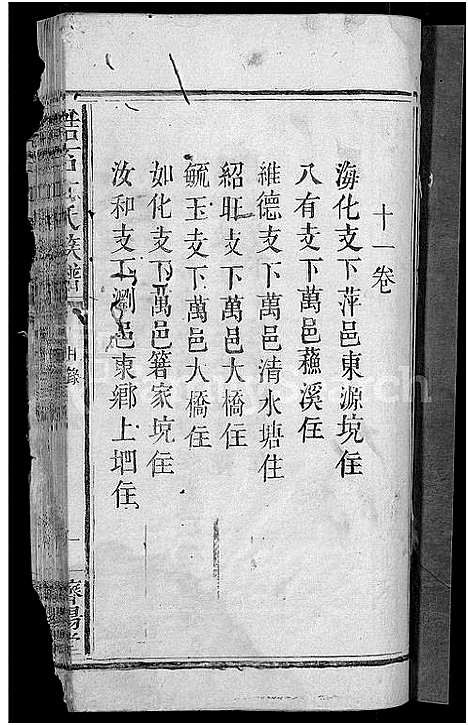 十一卷
海化支下萍邑東源境住
八有支下萬邑蘸溪住
維德支下萬邑清水塘住
紹旺支下萬邑大橋住
毓玉支下萬邑大橋住
如化支下萬邑箬家境住
汝和支下瀏邑東鄉上𡊮住
氏族譜
目錄
濟陽堂